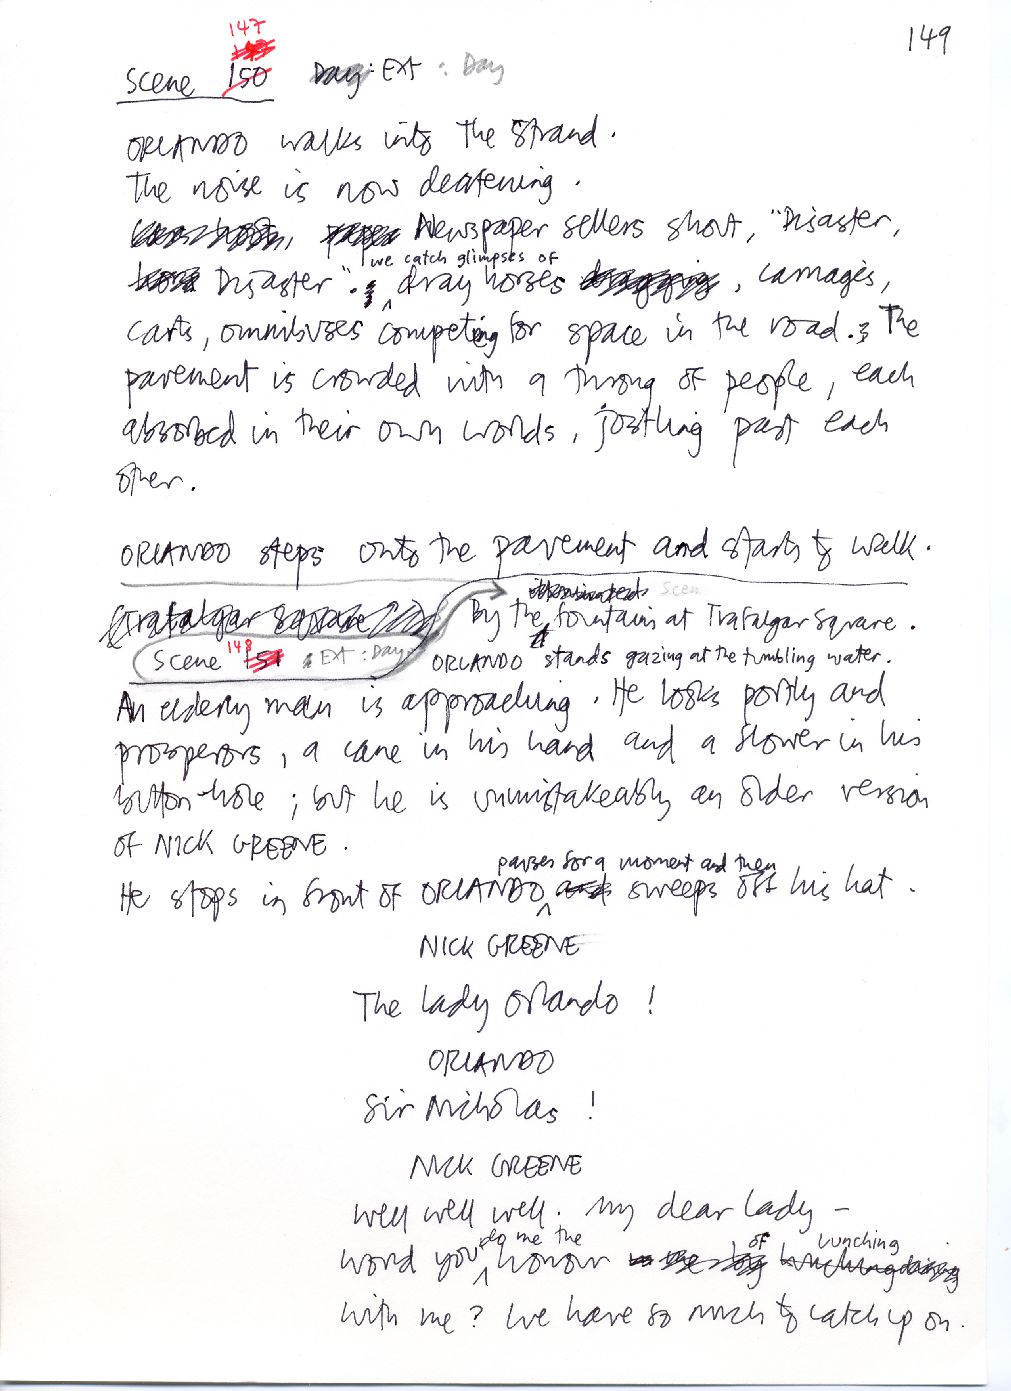 149
147
Scene 150 Day : Ext : Day
ORLANDO walks into the Strand.
The noise is now deafening.
Newspaper sellers shout, "Disaster,
we catch glimpses of
Disaster". dray horses dragging, carriages,
carts, omnibuses competing for space in the road. The
pavement is crowded with a throng of people, each
absorbed in their own worlds, jostling past each
other.
ORLANDO steps onto the pavement and starts to walk.
Scene
(Trafalgar Square By the fountain at Trafalgar Square.
Scene 148 151 : Ext : Day ORLANDO stands gazing at the tumbling water.
An elderly man is approaching. He looks portly and
prosperors, a cane in his hand and a flower in his
button-hole ; but he is unmistakeably an older version
of NICK GREENE.
pauses for a moment and then
He stops in front of ORLANDO and sweeps off his hat.
NICK GREENE
The Lady Orlando !
ORLANDO
Sir Nicholas !
NICK GREENE
Well well well. My dear lady –
do me the of lunching
would you honour lunching dining
with me? We have so much to catch up on.